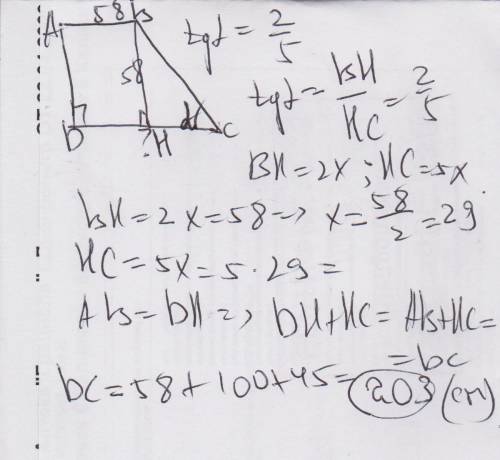 58
A B
58
D H C
α
?
tgα = 2/5
tgα = BH/HC = 2/5
BH = 2x ; HC = 5x
BH = 2x = 58 => x = 58/2 = 29
HC = 5x = 5 · 29 =
AB = DH => DH + HC = AB + HC =
= DC
DC = 58 + 100 + 45 = 203 (cm)